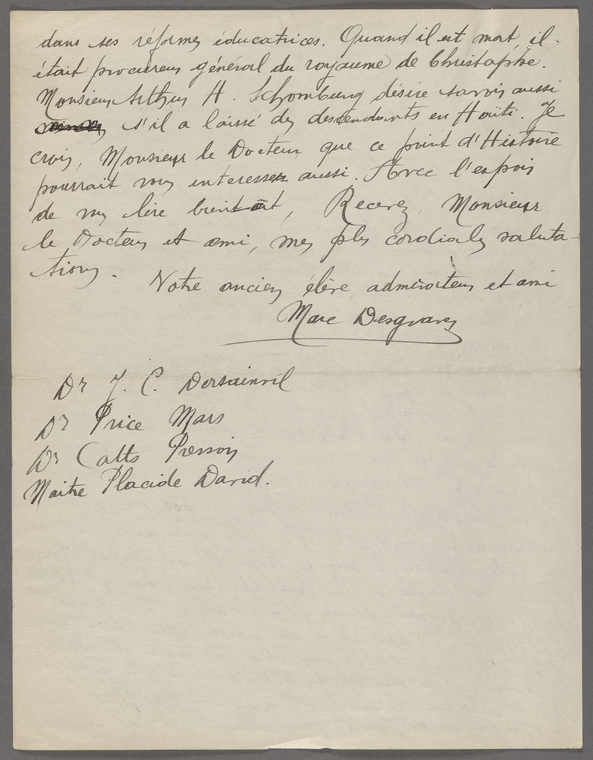 dans ses réformes éducatrices. Quand il est mort il
était procureur général du royaume de Christophe.
Monsieur Arthur A. Schomburg désire savoir aussi
s'il a laissé des descendants en Haïti. Je
crois, Monsieur le Docteur que ce point d'Histoire
pourrait vous interesser aussi. Avec l'espoir
de vous lire bientôt, Recevez Monsieur
le Docteur et ami, mes plus cordiales saluta-
tions.
Votre ancien élève admirateur et ami
Marc Desgraves
Dr J. C. Dorsainvil
Dr Price Mars
Dr Catts Pressoir
Maitre Placide David.